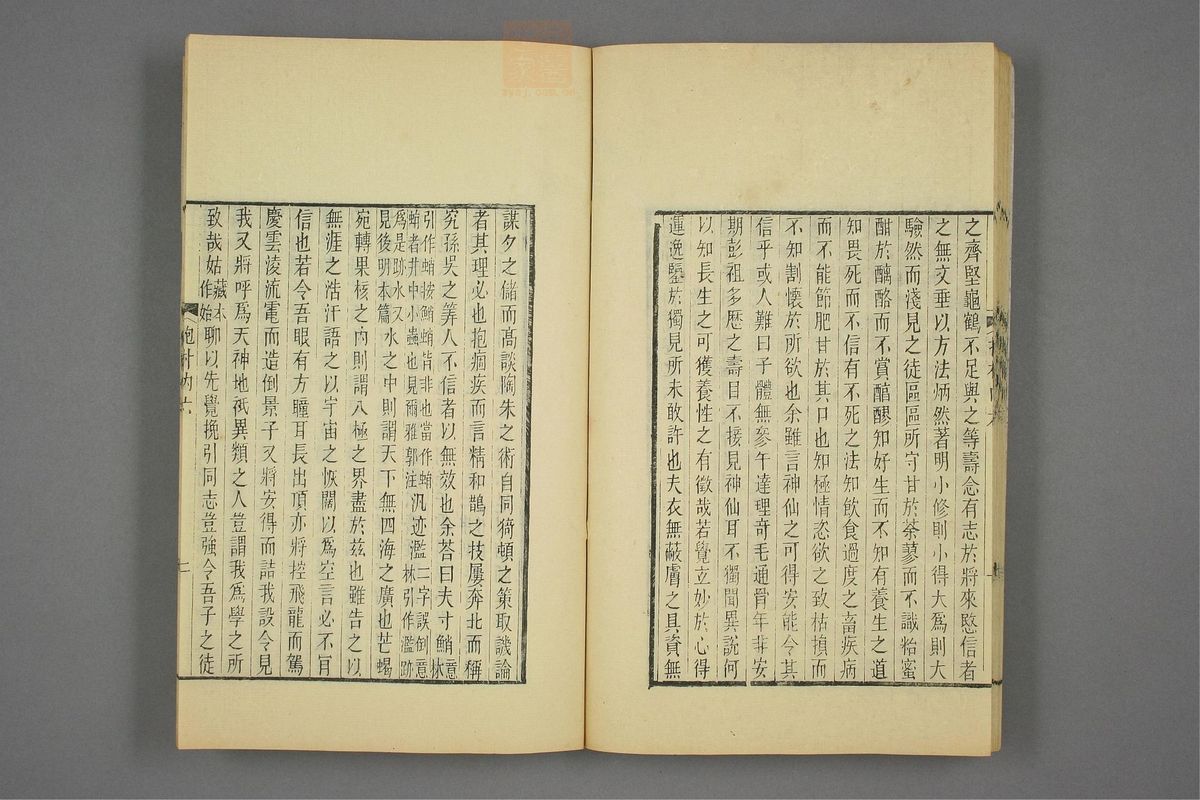 之齊堅龜鶴不足與之等壽念有志於將來愍信者
之無文垂以方法炳然著明小修則小得大爲則大
驗然而淺見之徒區區所守甘於荼蓼而不識粭蜜
酣於醨酪而不賞醇醪知好生而不知有養生之道
知畏死而不信有不死之法知飲食過度之畜疾病
而不能節肥甘於其口也知極情恣欲之致枯損而
不知割懷於所欲也余雖言神仙之可得安能令其
信乎或人難曰子體無參午達理奇毛通骨年非安
期彭祖多歷之壽目不接見神仙耳不獨聞異說何
以知長生之可獲養性之有徵哉若覺立妙於心得
運逸鑒於獨見所未敢許也夫衣無蔽膚之具資無
謀夕之儲而高談陶朱之術自同猗頓之策取譏論
者其理必也抱痼疾而言精和鵲之技屢奔北而稱
究孫吳之筭人不信者以無效也余荅曰夫寸鮹意林
引作蛸按鮹蛸皆非也當作蛕
蛕者井中小蟲也見爾雅郭注汎迹濫二字誤倒意林引作濫跡
爲是跡水又
見後明本篇水之中則謂天下無四海之廣也芒蝎
宛轉果核之內則謂八極之界盡於兹也雖告之以
無涯之浩汗語之以宇宙之恢闊以爲空言必不肎
信也若令吾眼有方瞳耳長出頂亦將控飛龍而駕
慶雲淩流電而造倒景子又將安得而詰我設令見
我又將呼爲天神地祇異類之人豈謂我爲學之所
致哉姑藏本作始聊以先覺挽引同志豈強令吾子之徒
抱朴內六
七